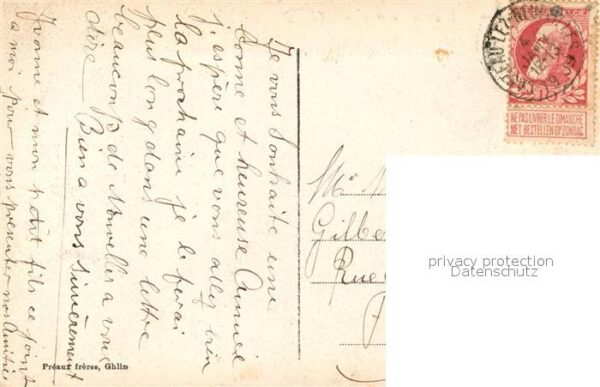 Je vous souhaite une
bonne et heureuse Année
j'espère que vous allez bien
la prochaine je le ferai
plus long dans une lettre
beaucoup de Nouvelles a vous
dire
Bien a vous sincèrement
Yvonne et mon petit fils se joint
a moi pour vous presenter nos Amitiés
Préaux frères, Ghlin
NE PAS LIVRER LE DIMANCHE
NIET BESTELLEN OP ZONDAG
Mr
Gilbe
Rue
privacy protection
Datenschutz